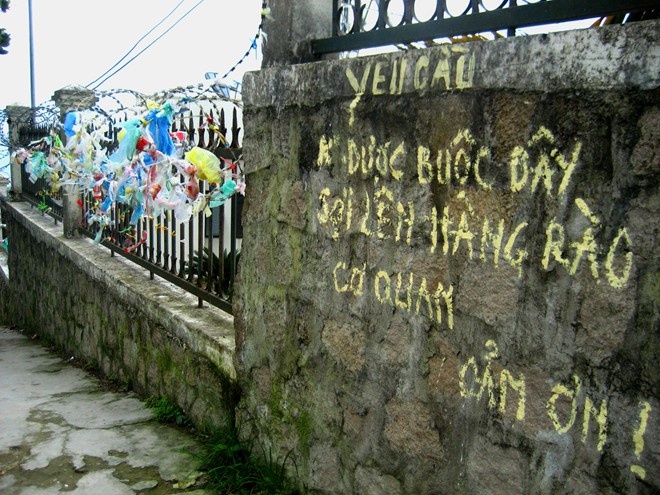 YÊU CẦU
K ĐƯỢC BUỘC DÂY
SỢI LÊN HÀNG RÀO
CƠ QUAN
CẢM ƠN !